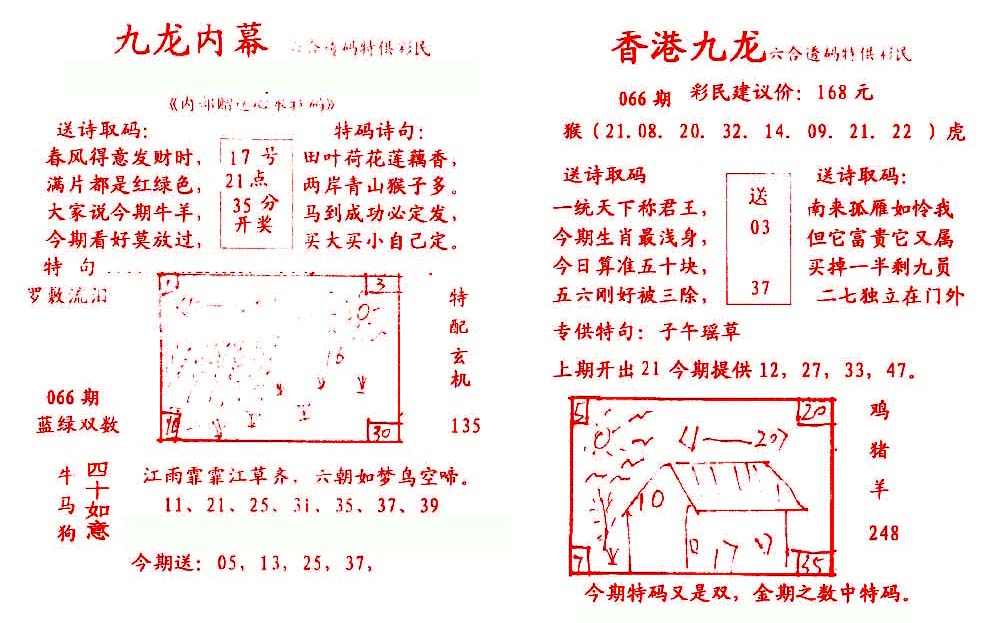 九龙内幕 六合透码特供彩民
送诗取码：
春风得意发财时，
满片都是红绿色，
大家说今期牛羊，
今期看好莫放过，
17号
21点
35分
开奖
特码诗句：
田叶荷花莲藕香，
两岸青山猴子多。
马到成功必定发，
买大买小自己定。
特句
1
3
16
30
特配玄机
135
066期
蓝绿双数
牛马狗
四十如意
江雨霏霏江草齐，六朝如梦鸟空啼。
11、21、25、31、35、37、39
今期送：05，13，25，37，
香港九龙六合透码特供彩民
066期 彩民建议价：168元
猴（21.08. 20. 32. 14. 09. 21. 22 ）虎
送诗取码
一统天下称君王，
今期生肖最浅身，
今日算准五十块，
五六刚好被三除，
送
03
37
送诗取码：
南来孤雁如怜我
但它富贵它又属
买掉一半剩九员
二七独立在门外
专供特句：子午瑶草
上期开出21今期提供12，27，33，47。
5
20
10
17
7
35
鸡
猪
羊
248
今期特码又是双，金期之数中特码。